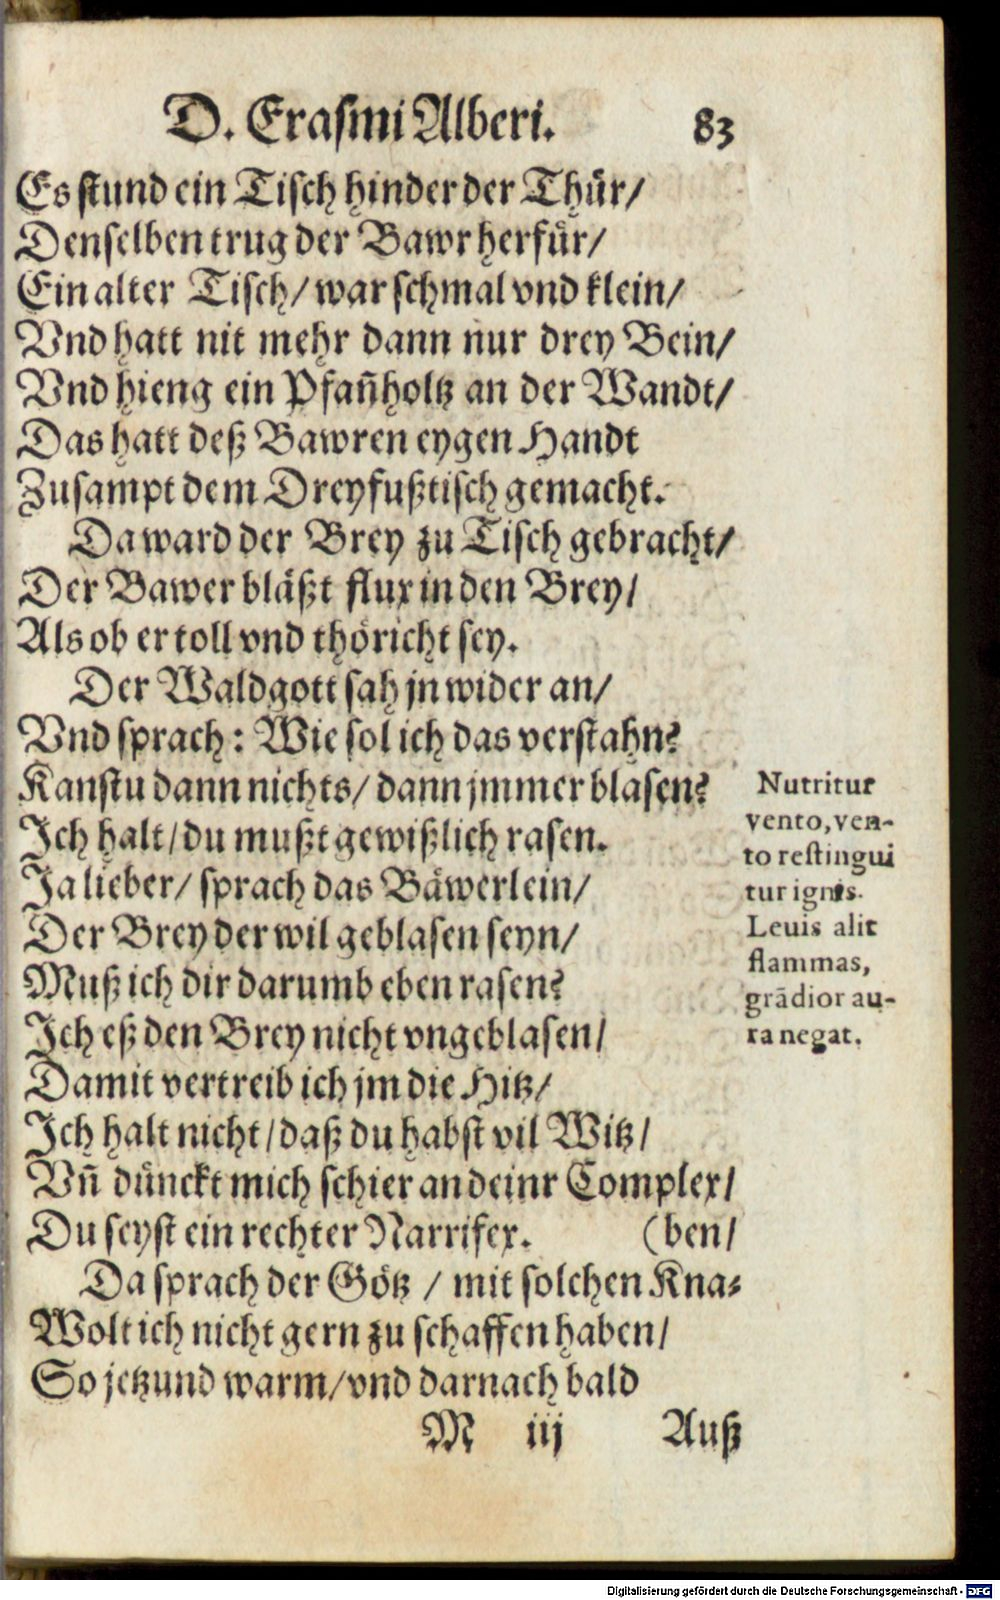 D. Erasmi Alberi. 83
Es stund ein Tisch hinder der Thür/
Denselben trug der Bawr herfür/
Ein alter Tisch/ war schmal vnd klein/
Vnd hatt nit mehr dann nur drey Bein/
Vnd hieng ein Pfañholtz an der Wandt/
Das hatt deß Bawren eygen Handt
Zusampt dem Dreyfußtisch gemacht.
Da ward der Brey zu Tisch gebracht/
Der Bawer bläßt flux in den Brey/
Als ob er toll vnd thöricht sey.
Der Waldgott sah jn wider an/
Vnd sprach: Wie sol ich das verstahn?
Kanstu dann nichts/ dann jmmer blasen?
Ich halt/ du mußt gewißlich rasen.
Ja lieber/ sprach das Bäwerlein/
Der Brey der wil geblasen seyn/
Muß ich dir darumb eben rasen?
Ich eß den Brey nicht vngeblasen/
Damit vertreib ich jm die Hitz/
Ich halt nicht/ daß du habst vil Witz/
Vñ dünckt mich schier an deinr Complex/
Du seyst ein rechter Narrifex. (ben/
Da sprach der Götz / mit solchen Kna-
Wolt ich nicht gern zu schaffen haben/
So jetzund warm/ vnd darnach bald
M iij Auß
Nutritur
vento, ven-
to restingui
tur ignis.
Leuis alit
flammas,
grādior au-
ra negat.
Digitalisierung gefördert durch die Deutsche Forschungsgemeinschaft - DFG